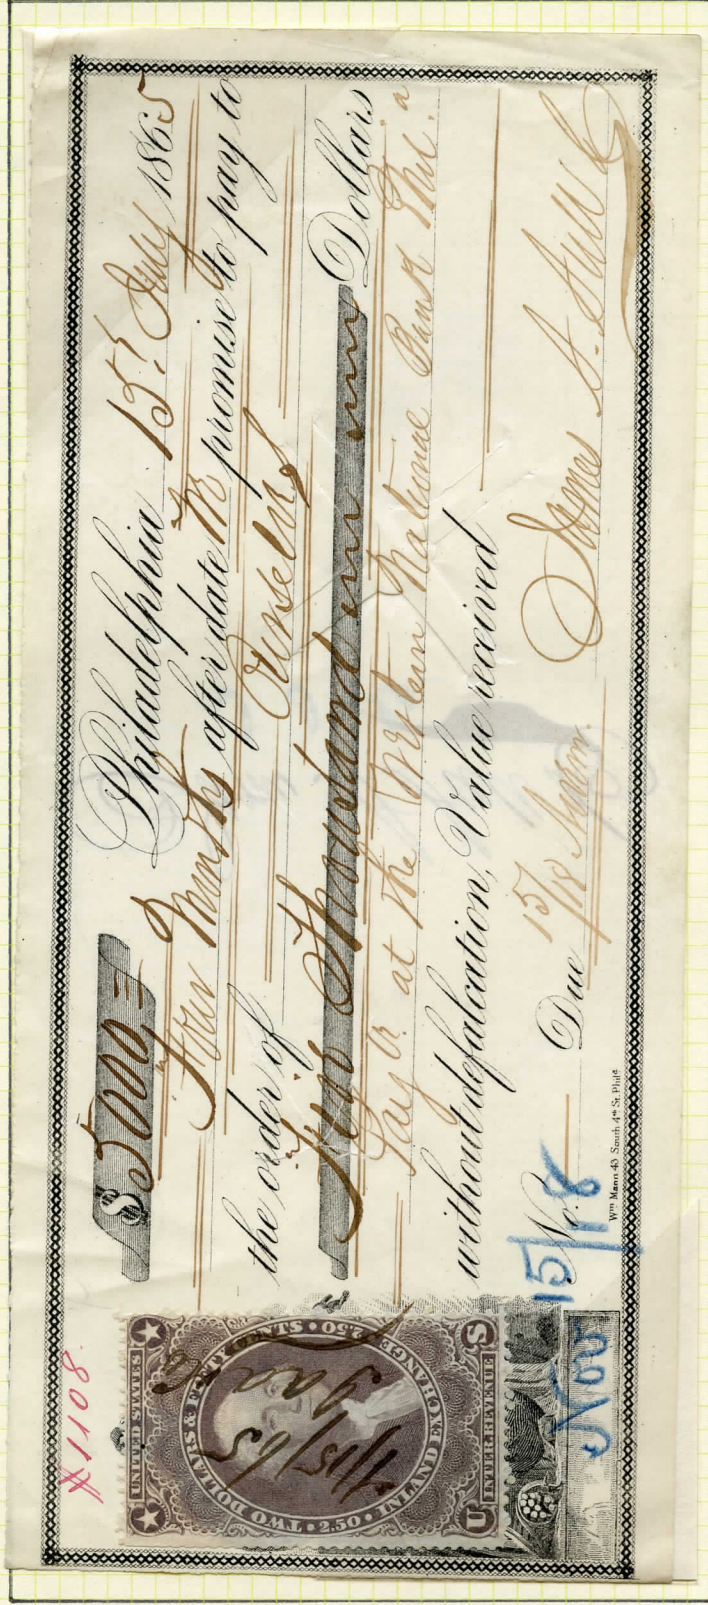 #1108
$5000 Philadelphia 15th July 1865
Four Months after date I promise to pay to
the order of Ourselves
Five Thousand Dollars
Payle at the Western National Bank Phil.a
without defalcation, Value received
No. Due 15/18 Novem.
Nov 15/18
James S.
Wm Mann 43 South 4th St. Phila
UNITED STATES
TWO DOLLARS & FIFTY CENTS • 2.50 • INLAND EXCHANGE • 2.50 •
U INTER. REVENUE S
7/15/65